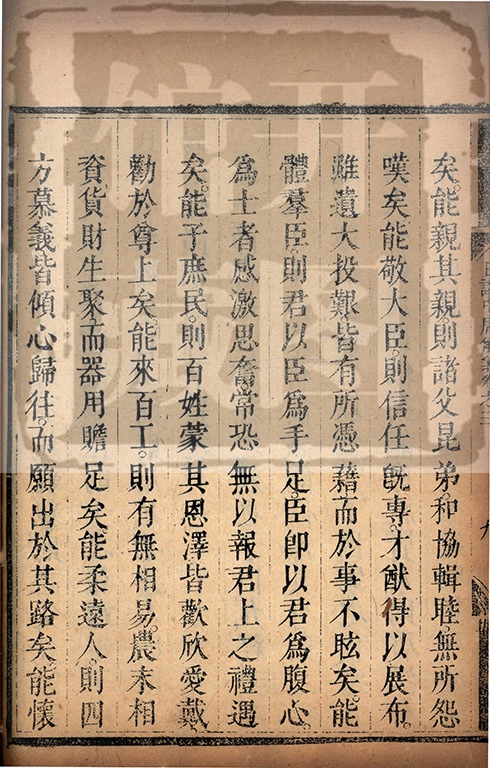 矣。能親其親。則諸父昆弟。和協輯睦無所怨
嘆矣能敬大臣。則信任旣專。才猷得以展布。
雖遺大投艱皆有所憑藉而於事不眩矣能
體羣臣則君以臣爲手足。臣卽以君爲腹心。
爲士者感激思奮常恐無以報君上之禮遇
矣。能子庶民。則百姓蒙其恩澤皆歡欣愛戴。
勸於尊上矣。能來百工。則有無相易。農末相
資。貨財生聚而器用贍足矣能柔遠人。則四
方慕義皆傾心歸往。而願出於其路矣能懷